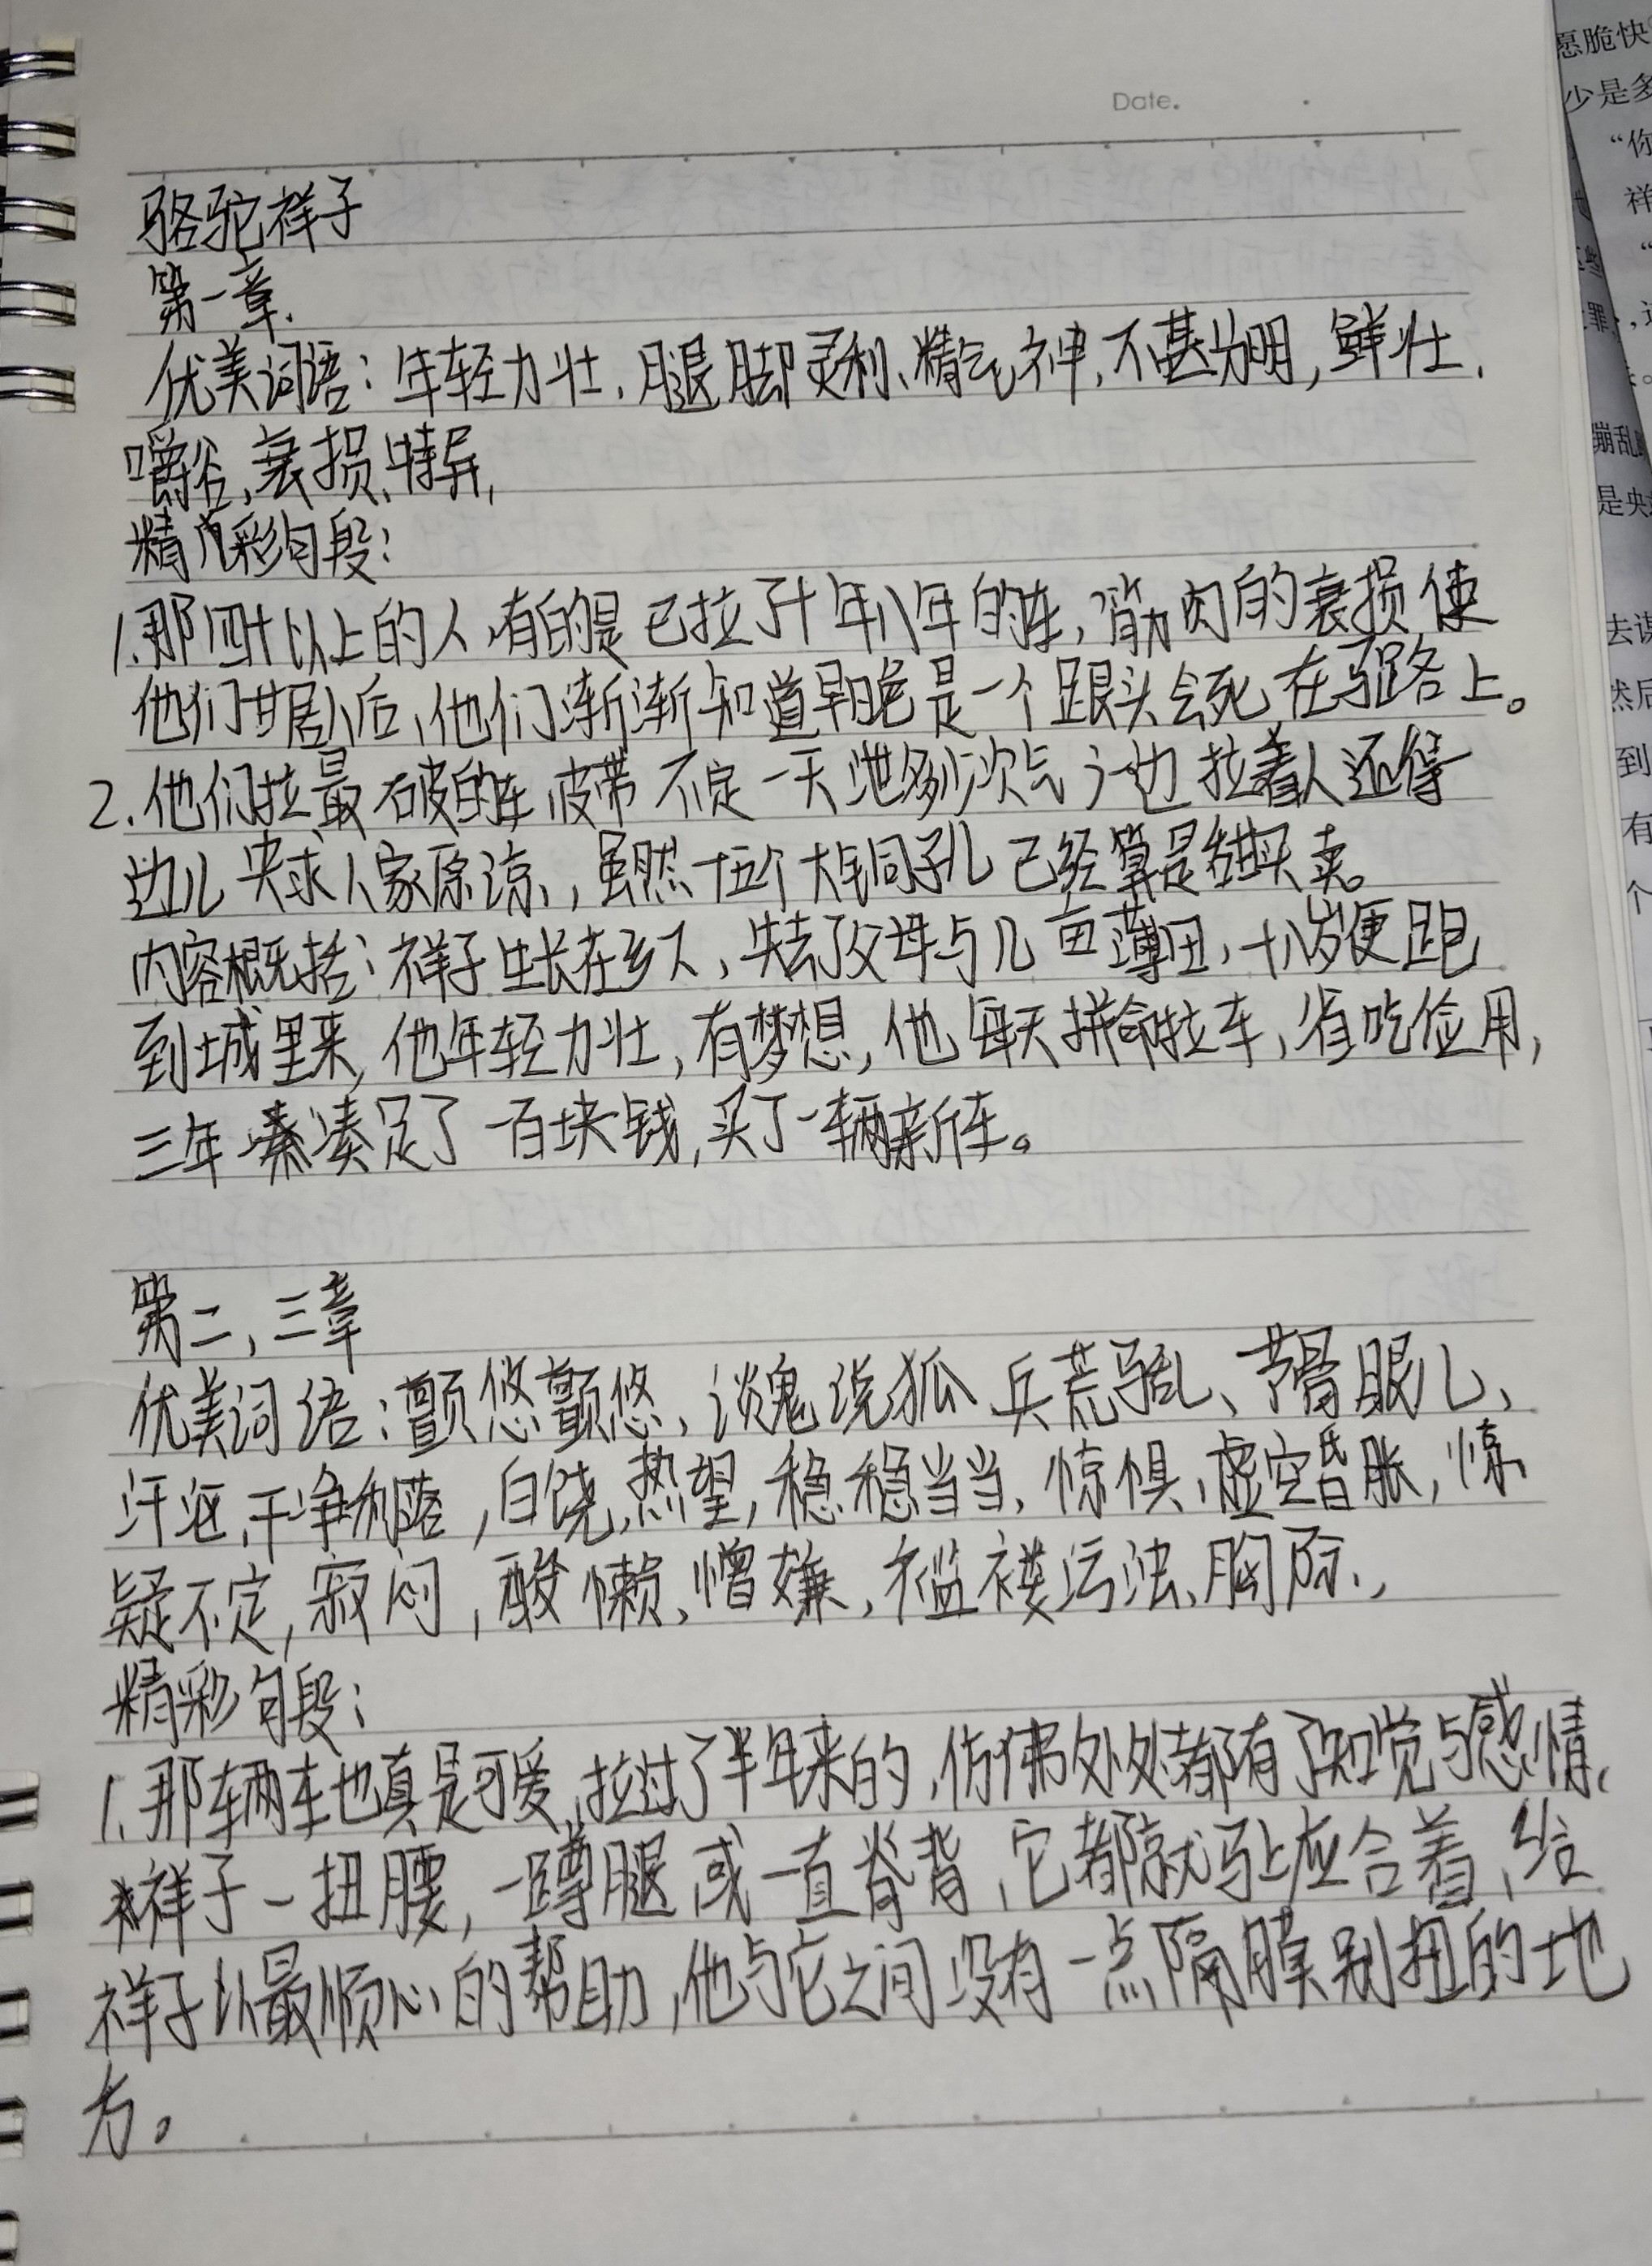 Date.
骆驼祥子
第一章.
优美词语：年轻力壮、腿脚灵利、精气神、不甚分明，鲜壮、
嚼谷、衰损、特异，
精彩句段：
1.那四十以上的人，有的是已拉了十年八年的车，筋肉的衰损使
他们甘居人后，他们渐渐知道早晚是一个跟头会死在马路上。
2.他们拉最破的车，皮带不定一天泄多少次气，一边拉着人还得
边儿央求人家原谅，虽然十五个大铜子儿已经算是甜买卖。
内容概括：祥子生长在乡下，失去了父母与几亩薄田，十八岁便跑
到城里来，他年轻力壮，有梦想，他每天拼命拉车，省吃俭用，
三年凑足了一百块钱，买了一辆新车。
第二，三章
优美词语：颤悠颤悠、谈鬼说狐、兵荒马乱、节骨眼儿、
汗沤、干净利落，白饶，热望，稳稳当当、惊惧、虚空昏胀，惊
疑不定，寂闷，酸懒、憎嫌、褴褛污浊、胸际、，
精彩句段：
1、那辆车也真是可爱，拉过了半年来的，仿佛处处都有了知觉与感情，
祥子一扭腰，一蹲腿，或一直脊背，它都就马上应合着，给
祥子以最顺心的帮助，他与它之间没有一点隔膜别扭的地
方。
愿脆快
少是多
“你
祥
蹦乱
是央
去谋
然后
到
有
个